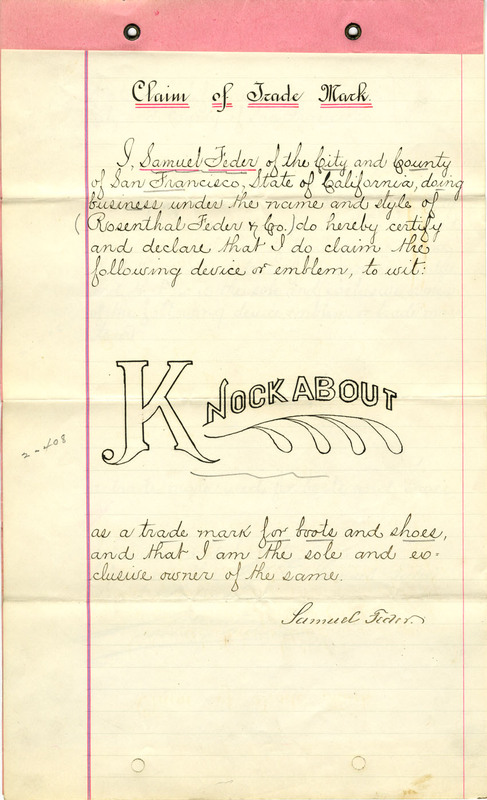 Claim of Trade Mark.
I, Samuel Feder of the City and County
of San Francisco, State of California, doing
business under the name and style of
(Rosenthal Feder & Co.) do hereby certify
and declare that I do claim the
following device or emblem, to wit:
KNOCKABOUT
2-408
as a trade mark for boots and shoes,
and that I am the sole and ex-
clusive owner of the same.
Samuel Feder.